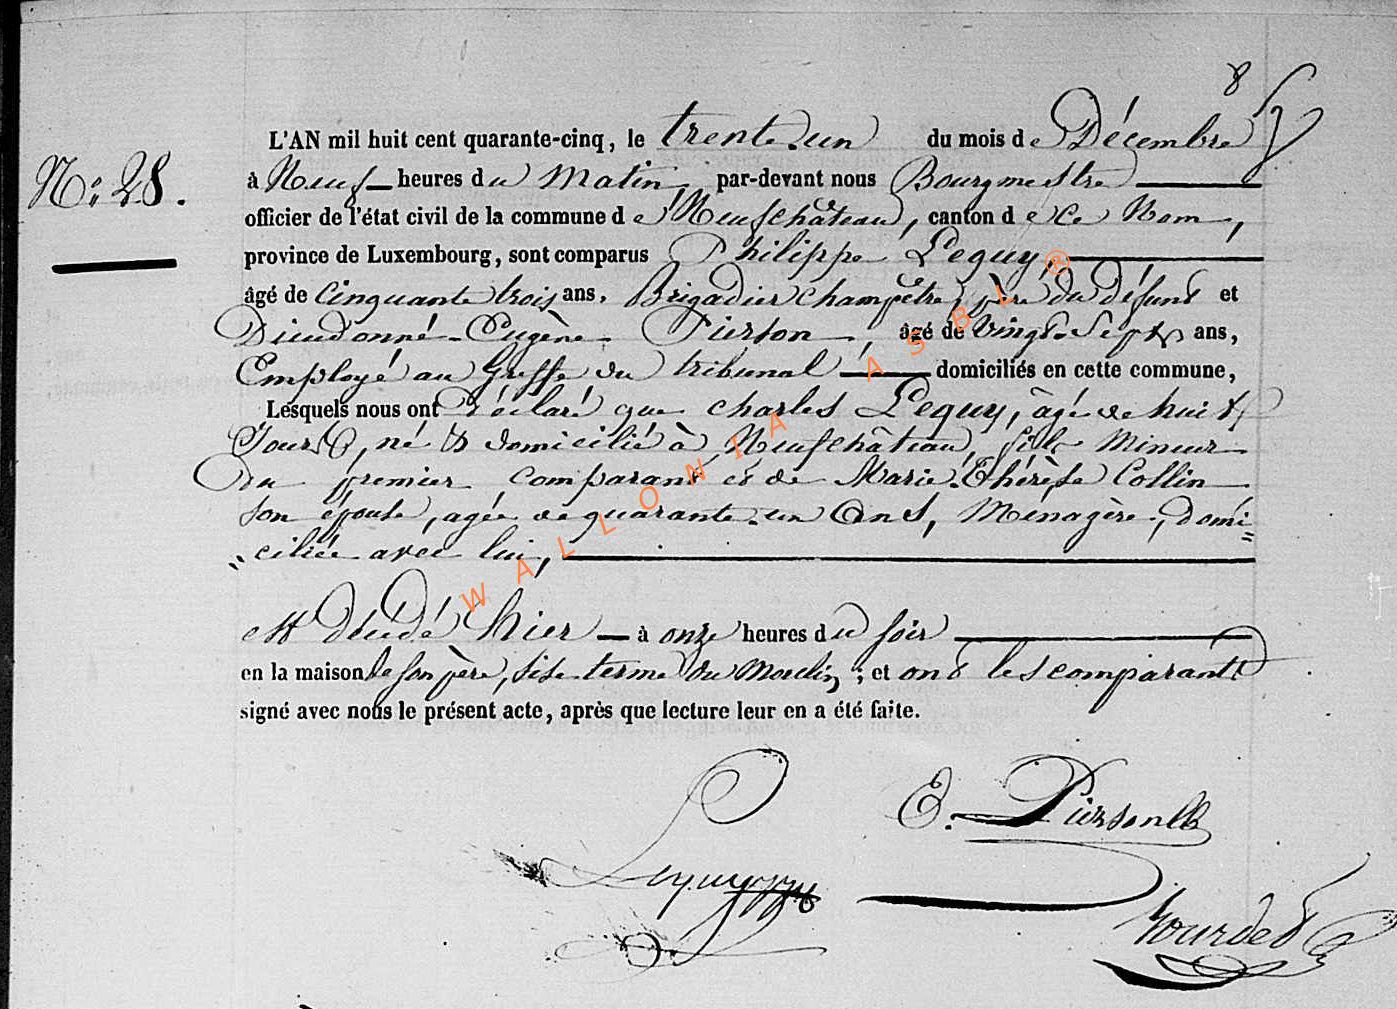 8
L'AN mil huit cent quarante-cinq, le trente-un du mois de Décembre
N.° 28.
à Neuf heures du Matin, par-devant nous Bourgmestre
officier de l'état civil de la commune de Neufchâteau, canton de ce Nom,
province de Luxembourg, sont comparus Philippe Lequy,
âgé de Cinquante trois ans, Brigadier champêtre, père du défunt et
Dieudonné-Eugène Pierson, âgé de Vingt-Sept ans,
Employé au Greffe du tribunal domiciliés en cette commune,
Lesquels nous ont déclaré que Charles Lequy, âgé de huit
Jours, né & domicilié à Neufchâteau, fils Mineur
du premier comparant et de Marie-Thérèse Collin
son épouse, agée de quarante-un Ans, Ménagère, domi=
"ciliée avec lui,
est décédé hier à onze heures du soir
en la maison de son père, sise terme du Moulin; et ont les comparants
signé avec nous le présent acte, après que lecture leur en a été faite.
Lequy
E. Pierson
Gourdet
WALLONIA ASBL ®